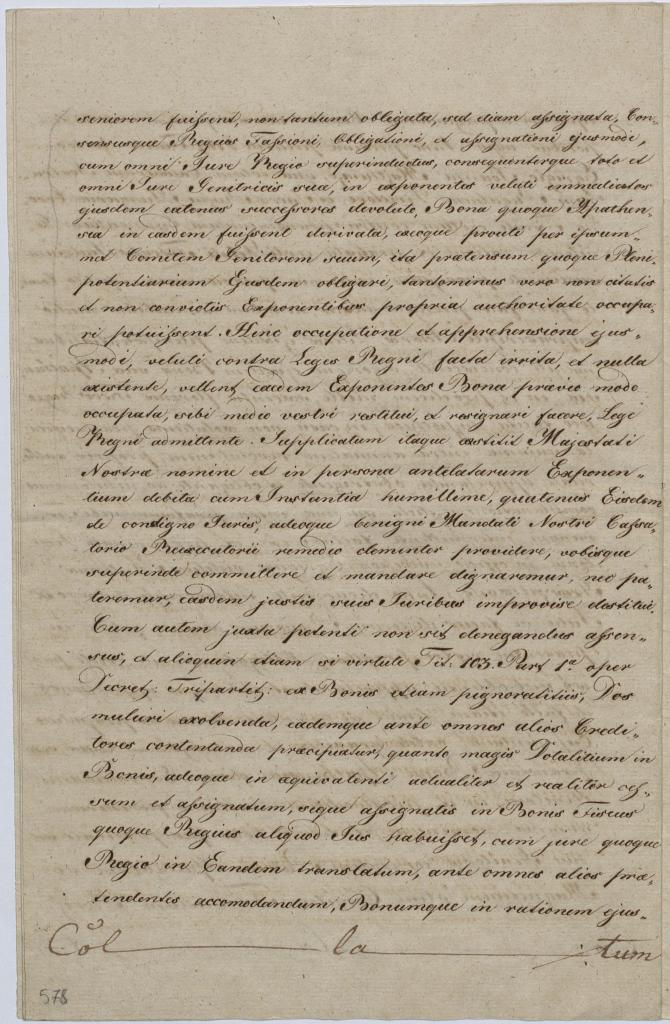 seniorem fuissent, non tantum obligata, sed etiam assignata, Con-
sensusque Regius Fassioni, Obligationi, et assignationi ejusmodi,
cum omni Jure Regio superinductus, consequenterque toto et
omni Jure Genitricis suae, in exponentes veluti immediatos
ejusdem eatenus successores devoluto, Bona quoque Hypathen-
sia in easdem fuissent derivata, eaeque prouti per ipsum-
met Comitem Genitorem suum, ita praetensum quoque Pleni-
potentiarium Ejusdem obligari, tantominus vero non citatis
et non convictis Exponentibus propria authoritate occupa-
ri potuissent. Hinc occupatione et apprehensione ejus-
modi, veluti contra Leges Regni facta irrita, et nulla
existente, vellent eaedem Exponentes Bona praevio modo
occupata, sibi medio vestri restitui, et resignari facere, Lege
Regni admittente. Supplicatum itaque exstitit Majestati
Nostrae nomine et in persona antelatarum Exponen-
tium debita cum Instantia humillime, quatenus Eisdem
de condigno Juris, adeoque benigni Mandati Nostri Cassa-
torio Reexecutorii remedio clementer providere, vobisque
superinde committere et mandare dignaremur, nec pa-
teremur, easdem justis suis Juribus improvise destitui.
Cum autem juxta petenti non sit denegandus assen-
sus, et alioquin etiam si virtute Tit: 103. Part 1ae oper
Decret: Tripartit: ex Bonis etiam pignoratitiis, Dos
mulieri exolvenda, eademque ante omnes alios Credi-
tores contentanda praecipiatur, quanto magis Dotalitium in
Bonis, adeoque in aequivalenti actualiter et realiter ces-
sum et assignatum, sique assignatis in Bonis Fiscus
quoque Regius aliquod Jus habuisset, cum jure quoque
Regio in Eandem translatum, ante omnes alios prae-
tendentes accomodandum, Bonumque in rationem ejus-
Col la tum
578